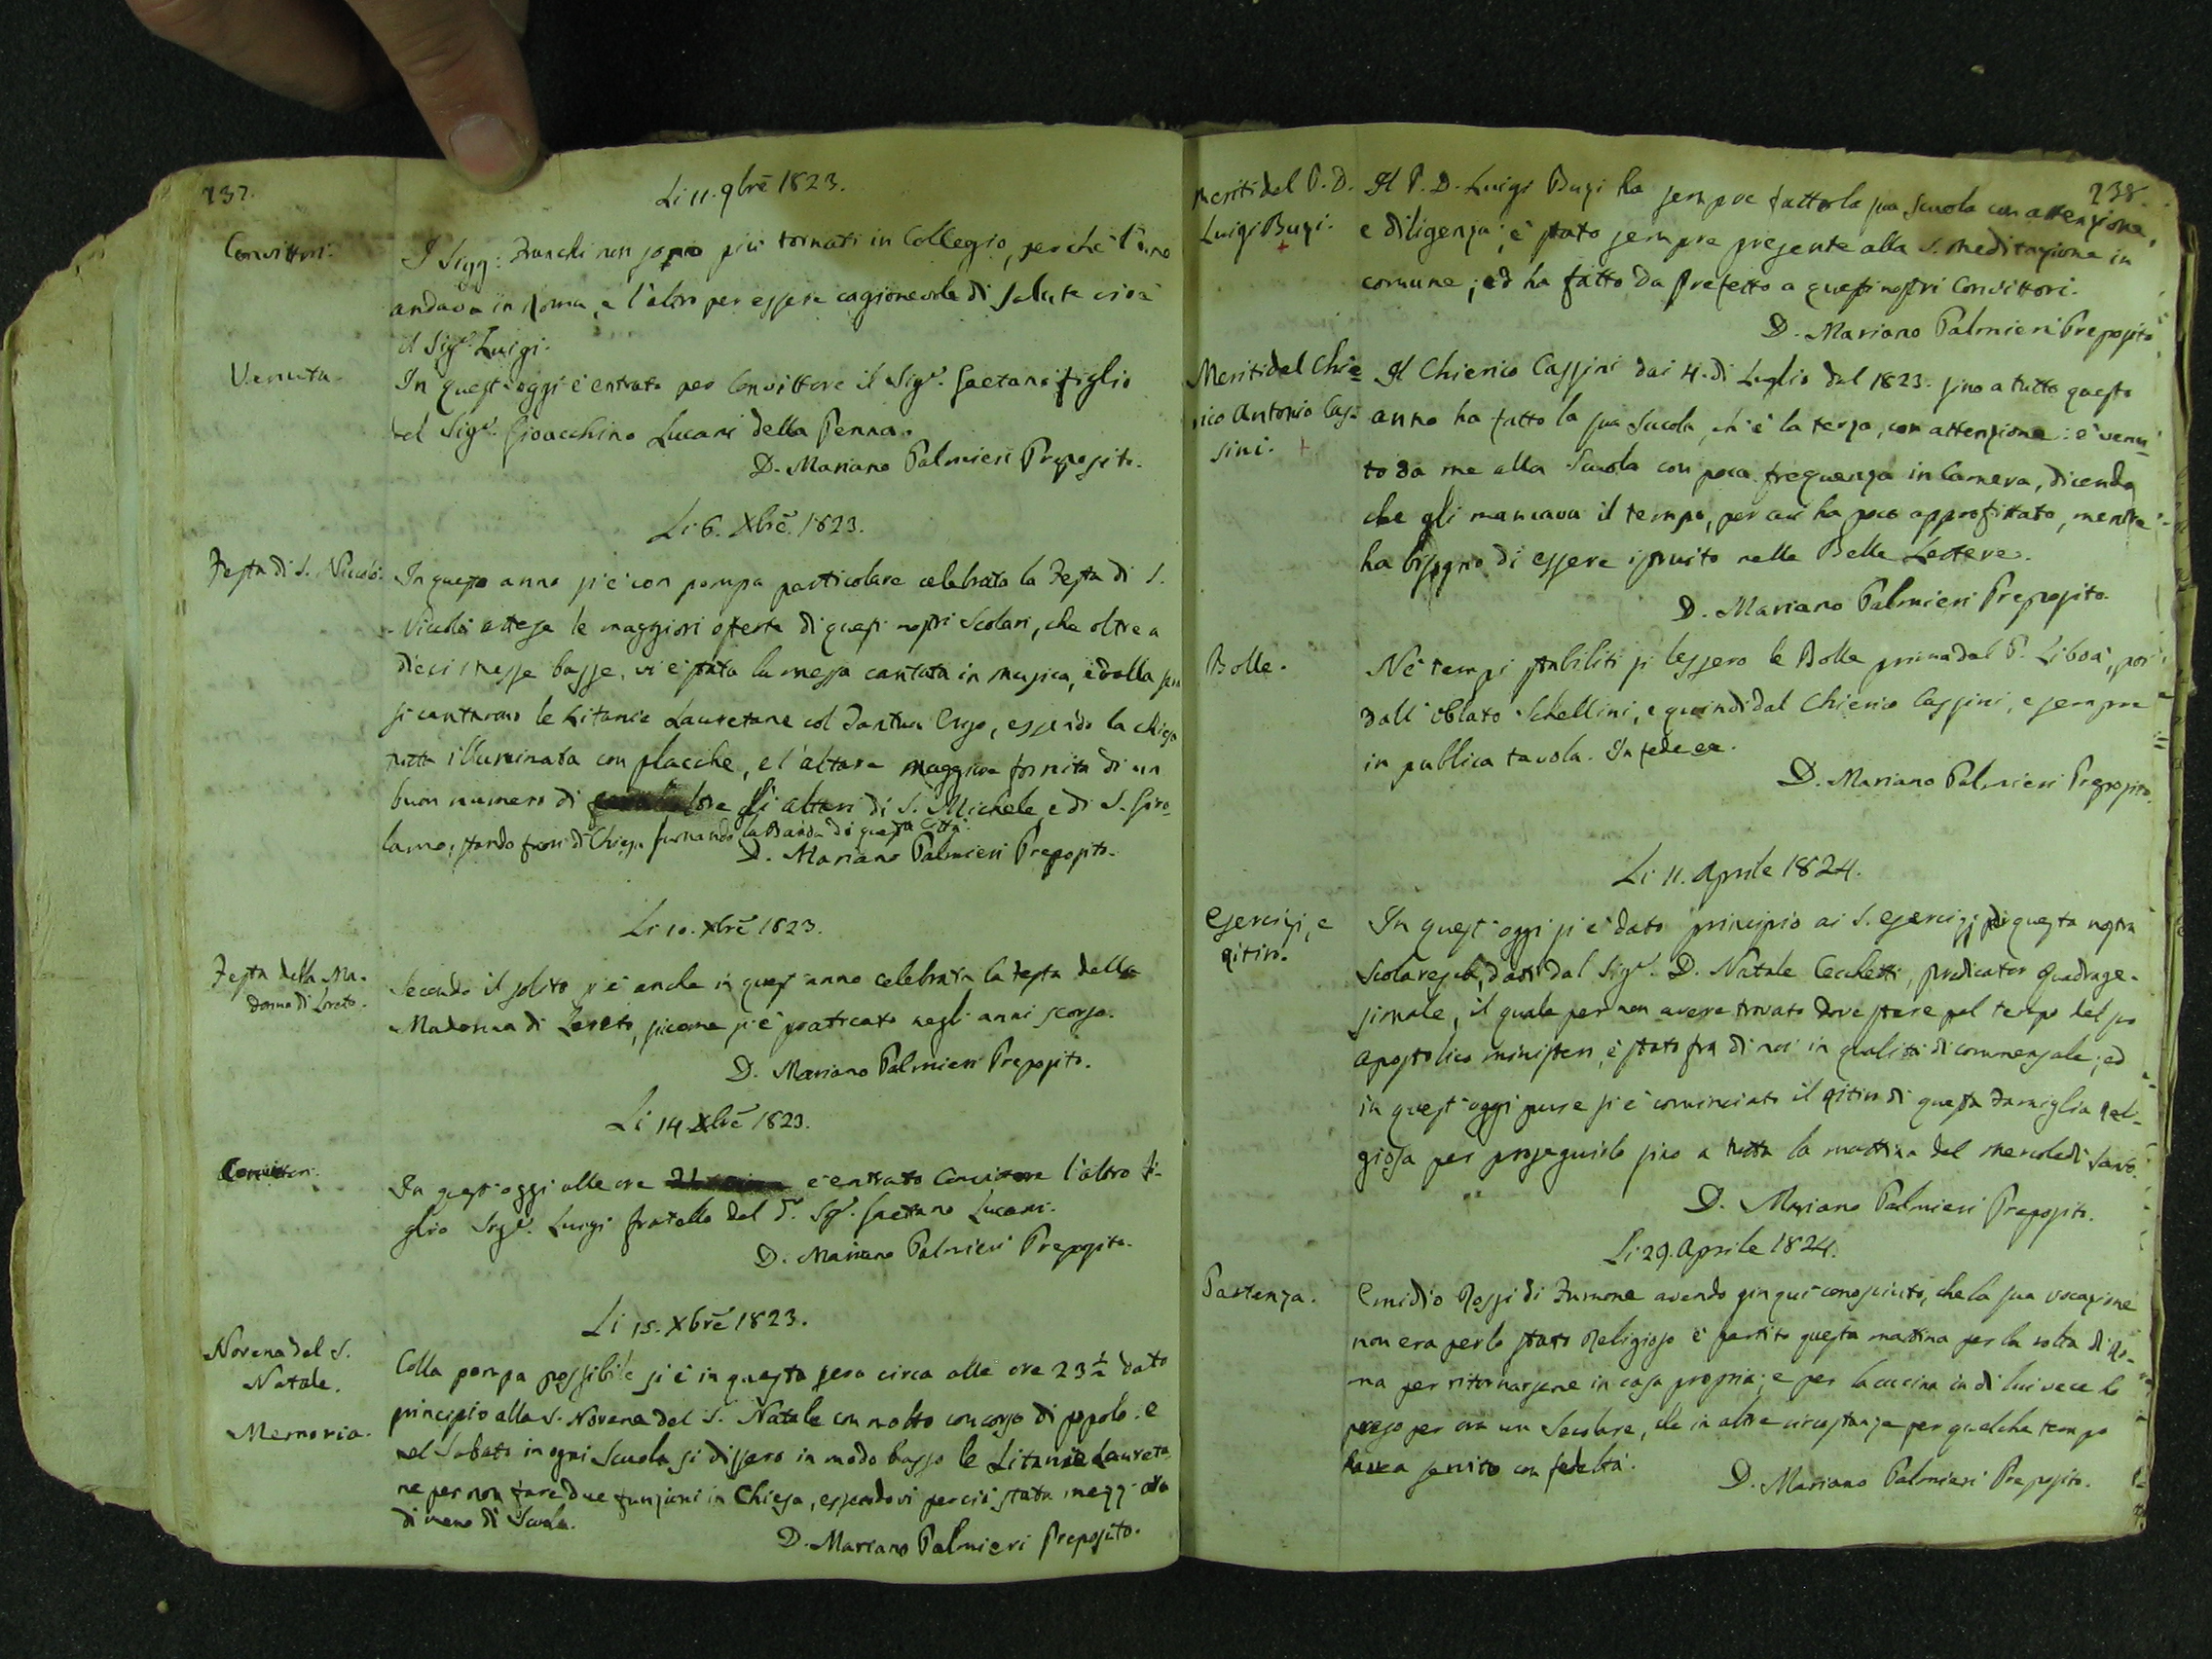 237.
Li 11. 9bre 1823.
Convittori.
I Sigg: Franchi non sono più tornati in Collegio, perchè l'uno
andava in Roma, e l'altro per essere cagionevole di salute cioè
il Sigr. Luigi.
Venuta.
In quest'oggi è entrato per Convittore il Sigr. Gaetano figlio
del Sigr. Gioacchino Lucani della Penna.
D. Mariano Palmieri Preposito.
Li 6. Xbre. 1823.
Festa di S. Niccolò.
In questo anno si è con pompa particolare celebrata la Festa di S.
Nicolò attese le maggiori oferte di questi nostri Scolari, che oltre a
dieci messe basse, vi è stata la messa cantata in musica, e dalla sera
si cantarono le Litanie Lauretane col Tantum Ergo, essendo la chiesa
tutta illuminata con placche, e l'altare maggiore fornito di un
buon numero di gli altari di S. Michele e di S. Giro-
lamo, stando fuori di Chiesa suonando la Banda di questa Città.
D. Mariano Palmieri Preposito.
Li 10. Xbre 1823.
Festa della Ma-
donna di Loreto.
Secondo il solito si è anche in quest'anno celebrata la festa della
Madonna di Loreto, siccome si è praticato negli anni scorsi.
D. Mariano Palmieri Preposito.
Li 14 Xbre 1823.
Convittori.
In quest'oggi alle ore è entrato Convittore l'altro fi-
glio Sigr. Luigi fratello del d. Sigr. Gaetano Lucani.
D. Mariano Palmieri Preposito.
Li 15. Xbre 1823.
Novena del S.
Natale.
Colla pompa possibile si è in questa sera circa alle ore 23 ½ dato
principio alla S. Novena del S. Natale con molto concorso di popolo: e
Memoria.
nel Sabato in ogni Scuola si dissero in modo basso le Litanie Laureta-
ne per non fare due funzioni in Chiesa, essendovi perciò stata mezz'ora
di meno di Scuola.
D. Mariano Palmieri Preposito.
238.
Meriti del P. D.
Luigi Bugi.
Il P. D. Luigi Bugi ha sempre fatto la sua scuola con attenzione,
e diligenza; è stato sempre presente alla S. meditazione in
comune; ed ha fatto da Prefetto a questi nostri Convittori.
D. Mariano Palmieri Preposito
Meriti del Chie-
rico Antonio Cas-
sini.
Il Chierico Cassini dai 4. di Luglio del 1823. sino a tutto questo
anno ha fatto la sua Scuola, ch'è la terza, con attenzione: è venu-
to da me alla Scuola con poca frequenza in Camera, dicendo
che gli mancava il tempo, per cui ha poco approfittato, mentre
ha bisogno di essere istruito nelle Belle Lettere.
D. Mariano Palmieri Preposito.
Bolle.
Nè tempi stabiliti si lessero le Bolle prima dal P. Liboà, poi
dall'oblato Schellini, e quindi dal Chierico Cassini, e sempre
in publica tavola. In fede ec.
D. Mariano Palmieri Preposito.
Li 11. Aprile 1824.
Esercizj, e
ritiro.
In quest'oggi si è dato principio ai S. esercizj di questa nostra
Scolaresca, dati dal Sigr. D. Natale Cecchetti, predicator Quadrage-
simale, il quale per non avere trovato dove stare pel tempo del suo
apostolico ministero, è stato fra di noi in qualità di commensale; ed
in quest'oggi pure si è cominciato il ritiro di questa Famiglia Reli-
giosa per proseguirlo sino a tutta la mattina del mercoledì Santo.
D. Mariano Palmieri Preposito.
Li 29. Aprile 1824.
Partenza.
Emidio Rossi di Fumone avendo qui conosciuto, che la sua vocazione
non era per lo stato Religioso è partito questa mattina per la volta di Ro-
ma per ritornarsene in casa propria; e per la cucina in di lui vece ho
preso per ora un Secolare, che in altre circostanze per qualche tempo
havea servito con fedeltà.
D. Mariano Palmieri Preposito.